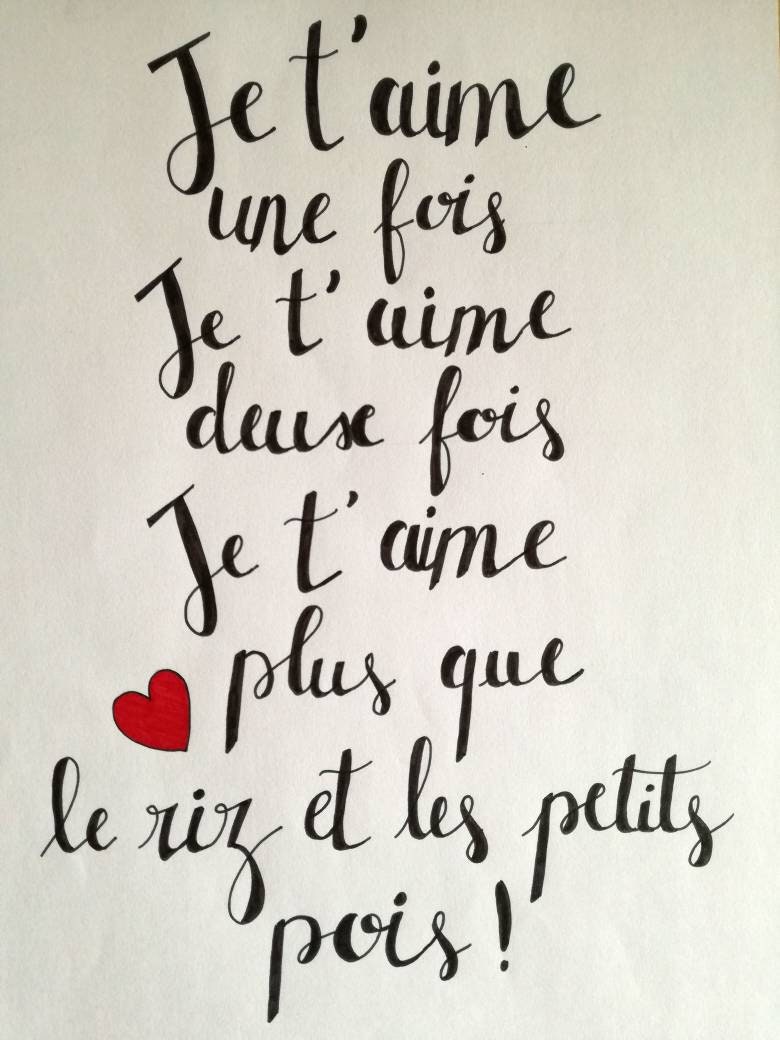 Je t'aime
une fois
Je t'aime
deux fois
Je t'aime
plus que
le riz et les petits
pois !